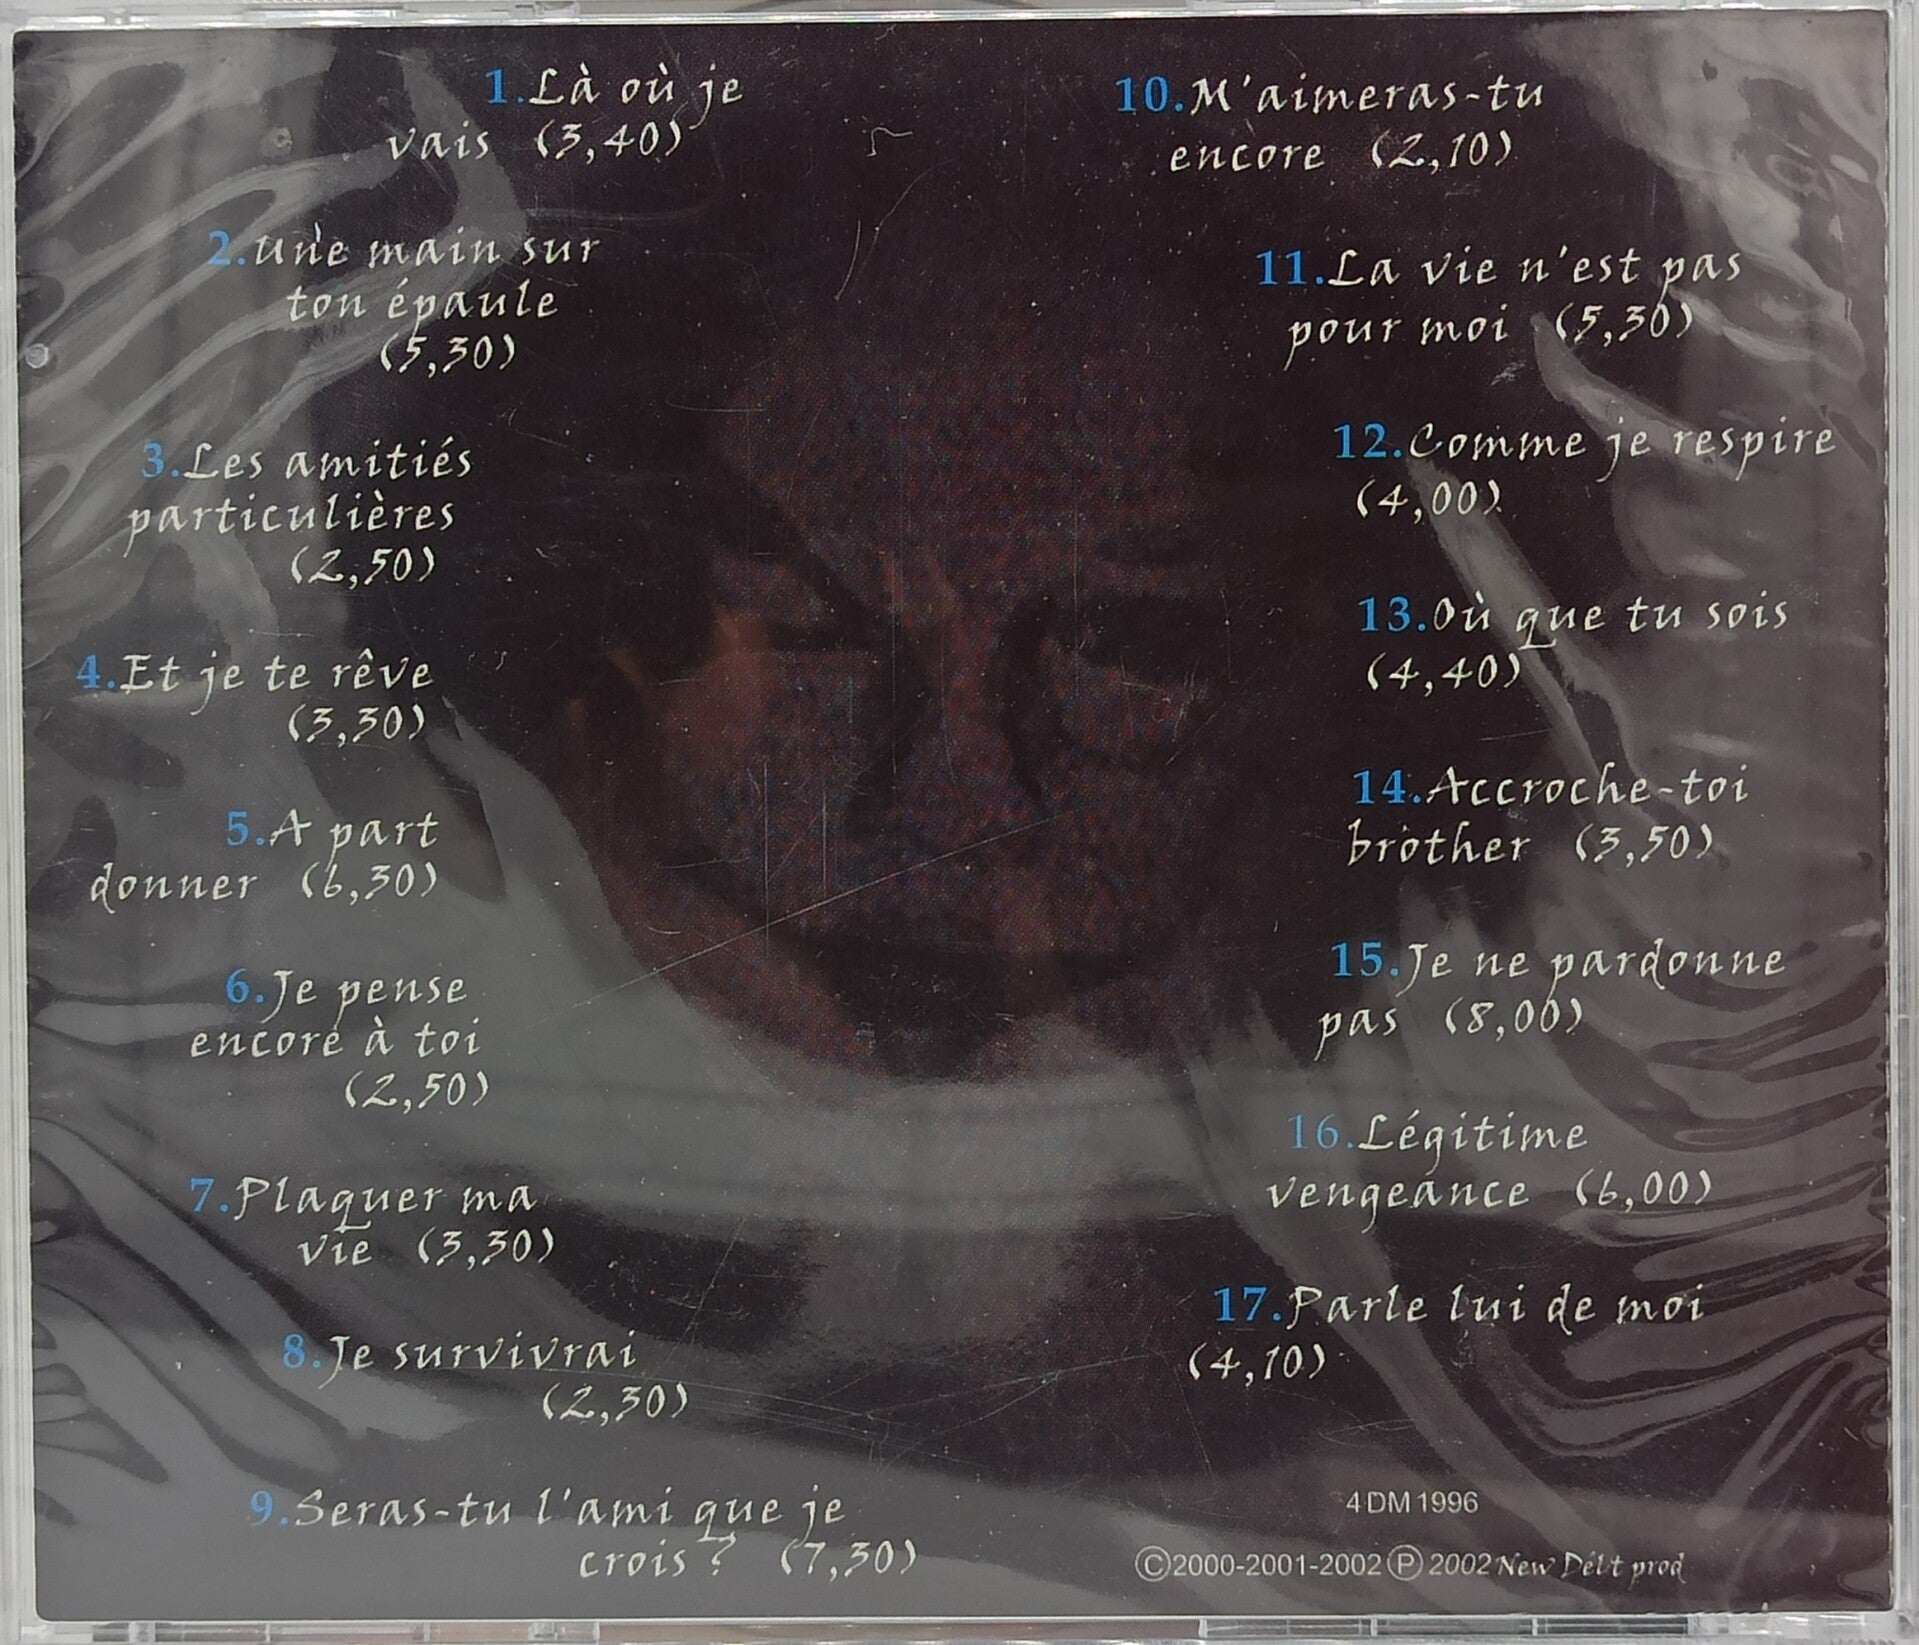 1.Là où je
vais (3,40)
2.Une main sur
ton épaule
(5,30)
3.Les amitiés
particulières
(2,50)
4.Et je te rêve
(3,30)
5.A part
donner (6,30)
6.Je pense
encore à toi
(2,50)
7.Plaquer ma
vie (3,30)
8.Je survivrai
(2,30)
9.Seras-tu l'ami que je
crois ? (7,30)
10.M'aimeras-tu
encore (2,10)
11.La vie n'est pas
pour moi (5,30)
12.Comme je respire
(4,00)
13.Où que tu sois
(4,40)
14.Accroche-toi
brother (3,50)
15.Je ne pardonne
pas (8,00)
16.Légitime
vengeance (6,00)
17.Parle lui de moi
(4,10)
4DM1996
©2000-2001-2002 ℗ 2002 New Délt prod